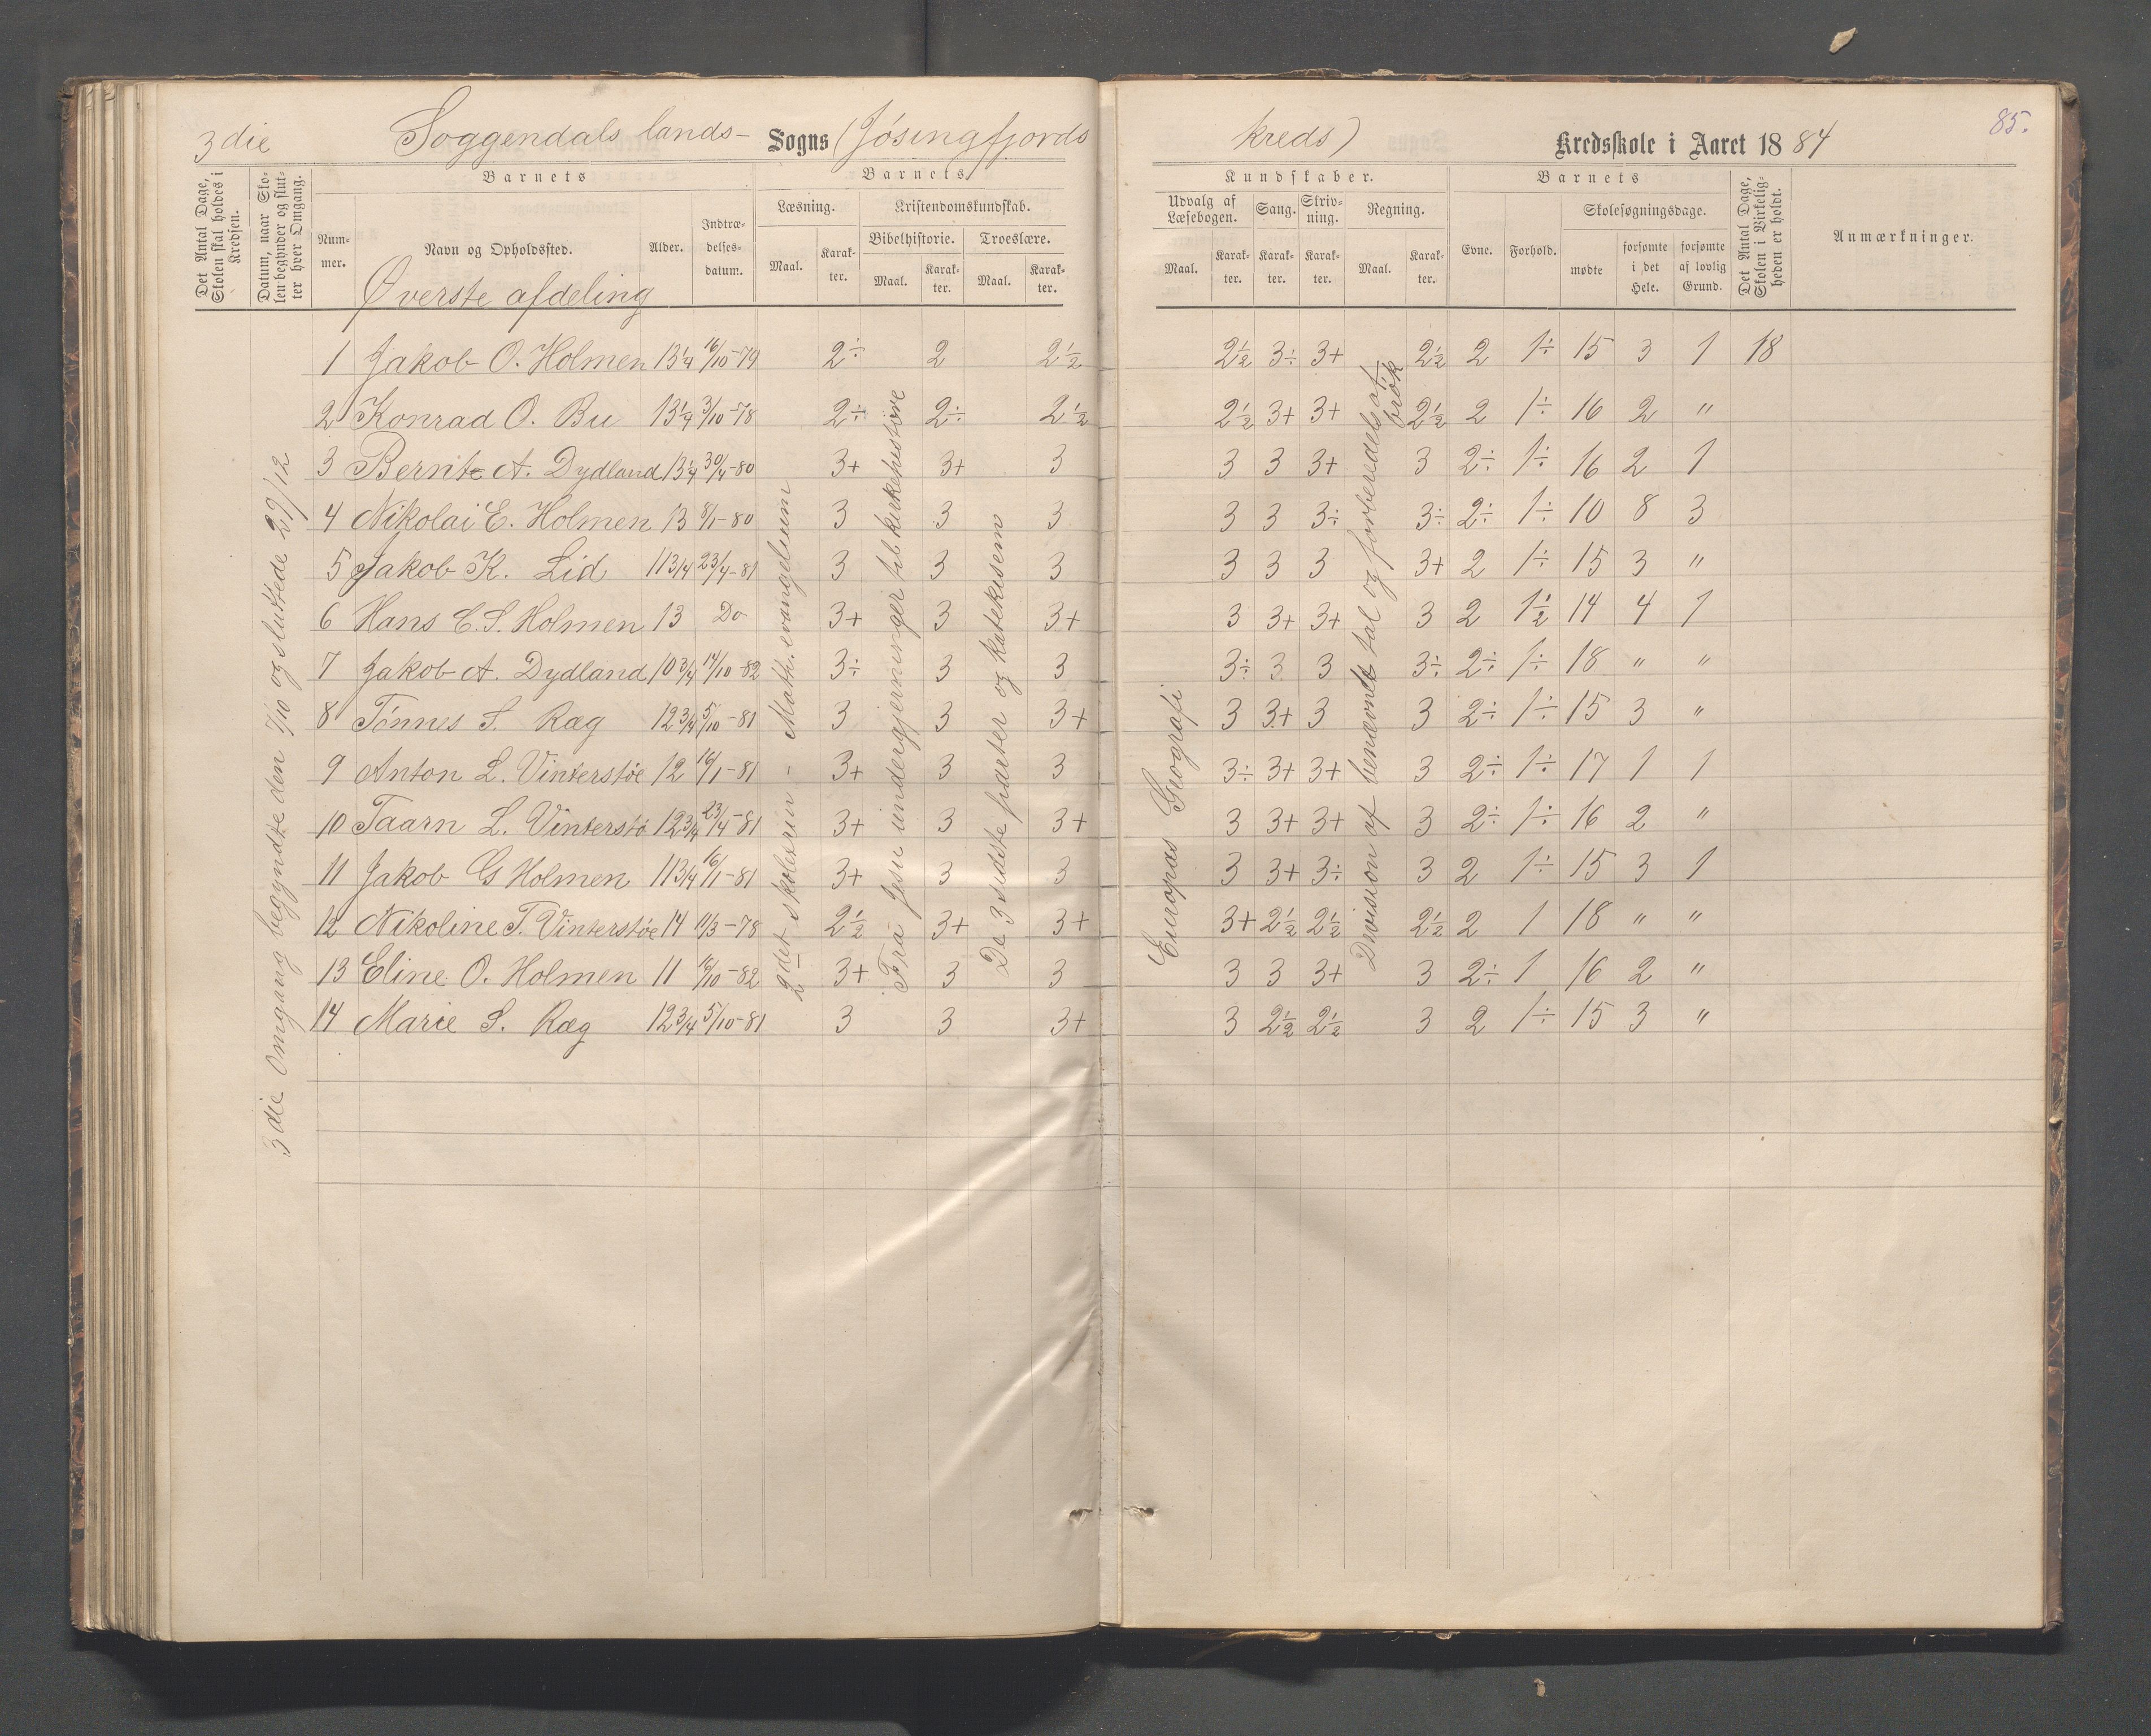 3die Soggendals lands- Sogns (Jösingfjords kreds) Kredsskole i Aaret 1884
85.
Det Antal Dage, Skolen skal holdes i Kredsen.
Datum, naar Skolen begynder og slutter hver Omgang.
Barnets
Nummer.
Navn og Opholdssted.
Alder.
Indtrædelsesdatum.
Barnets
Læsning.
Maal.
Karakter.
Kristendomskundskab.
Bibelhistorie.
Maal.
Karakter.
Troeslære.
Maal.
Karakter.
Kundskaber.
Udvalg af Læsebogen.
Maal.
Karakter.
Sang.
Karakter.
Skrivning.
Karakter.
Regning.
Maal.
Karakter.
Barnets
Evne.
Forhold.
Skolesøgningsdage.
mødte
forsømte i det Hele.
forsømte af lovlig Grund.
Det Antal Dage, Skolen i Virkeligheden er holdt.
Anmærkninger.
Øverste afdeling
3die Omgang begyndte den 7/10 og sluttede 29/12
2det skoletrin - Math. evangelium
Fra Jesu undergjerninger til kirkehistorie
De 3 sidste parter og katekisem
Europas Geografi
Division af benævnte tal og forberedels af brøk
1 Jakob O. Holmen 13 1/4 16/10-79 2÷ 2 2 1/2 2 1/2 3÷ 3+ 2 1/2 2 1÷ 15 3 1 18
2 Konrad O. Bu 13 1/4 3/10-78 2÷ 2÷ 2 1/2 2 1/2 3+ 3+ 2 1/2 2 1÷ 16 2 "
3 Bernt A. Dydland 13 1/4 30/4-80 3+ 3+ 3 3 3 3+ 3 2÷ 1÷ 16 2 1
4 Nikolai E. Holmen 13 8/1-80 3 3 3 3 3 3÷ 3÷ 2÷ 1÷ 10 8 3
5 Jakob K. Lid 11 3/4 23/4-81 3 3 3 3 3 3 3+ 2 1÷ 15 3 "
6 Hans E. S. Holmen 13 Do 3+ 3 3+ 3 3+ 3+ 3 2 1 1/2 14 4 1
7 Jakob A. Dydland 10 3/4 14/10-82 3÷ 3 3 3÷ 3 3 3÷ 2÷ 1÷ 18 " "
8 Tönnes S. Ræg 12 3/4 5/10-81 3 3 3+ 3 3+ 3 3 2÷ 1÷ 15 3 "
9 Anton L. Vinterstöe 12 16/1-81 3+ 3 3 3÷ 3+ 3+ 3 2÷ 1÷ 17 1 1
10 Taarn L. Vinterstö 12 3/4 23/4-81 3+ 3 3+ 3 3+ 3+ 3 2÷ 1÷ 16 2 "
11 Jakob G Holmen 11 3/4 16/1-81 3+ 3 3 3 3+ 3÷ 3 2 1÷ 15 3 1
12 Nikoline T. Vinterstöe 14 11/3-78 2 1/2 3+ 3+ 3+ 2 1/2 2 1/2 2 1/2 2 1 18 " "
13 Eline O. Holmen 11 16/10-82 3+ 3 3 3 3 3+ 3 2÷ 1 16 2 "
14 Marie S. Ræg 12 3/4 5/10-81 3 3 3+ 3 2 1/2 2 1/2 3 2 1÷ 15 3 "